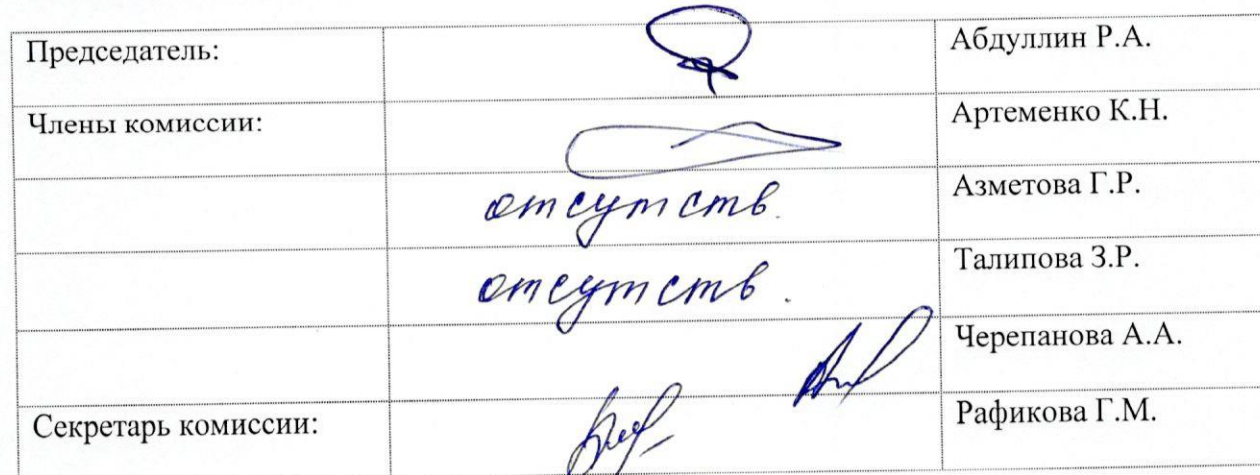 Председатель: Абдуллин Р.А.
Члены комиссии: Артеменко К.Н.
отсутств. Азметова Г.Р.
отсутств. Талипова З.Р.
Черепанова А.А.
Секретарь комиссии: Рафикова Г.М.